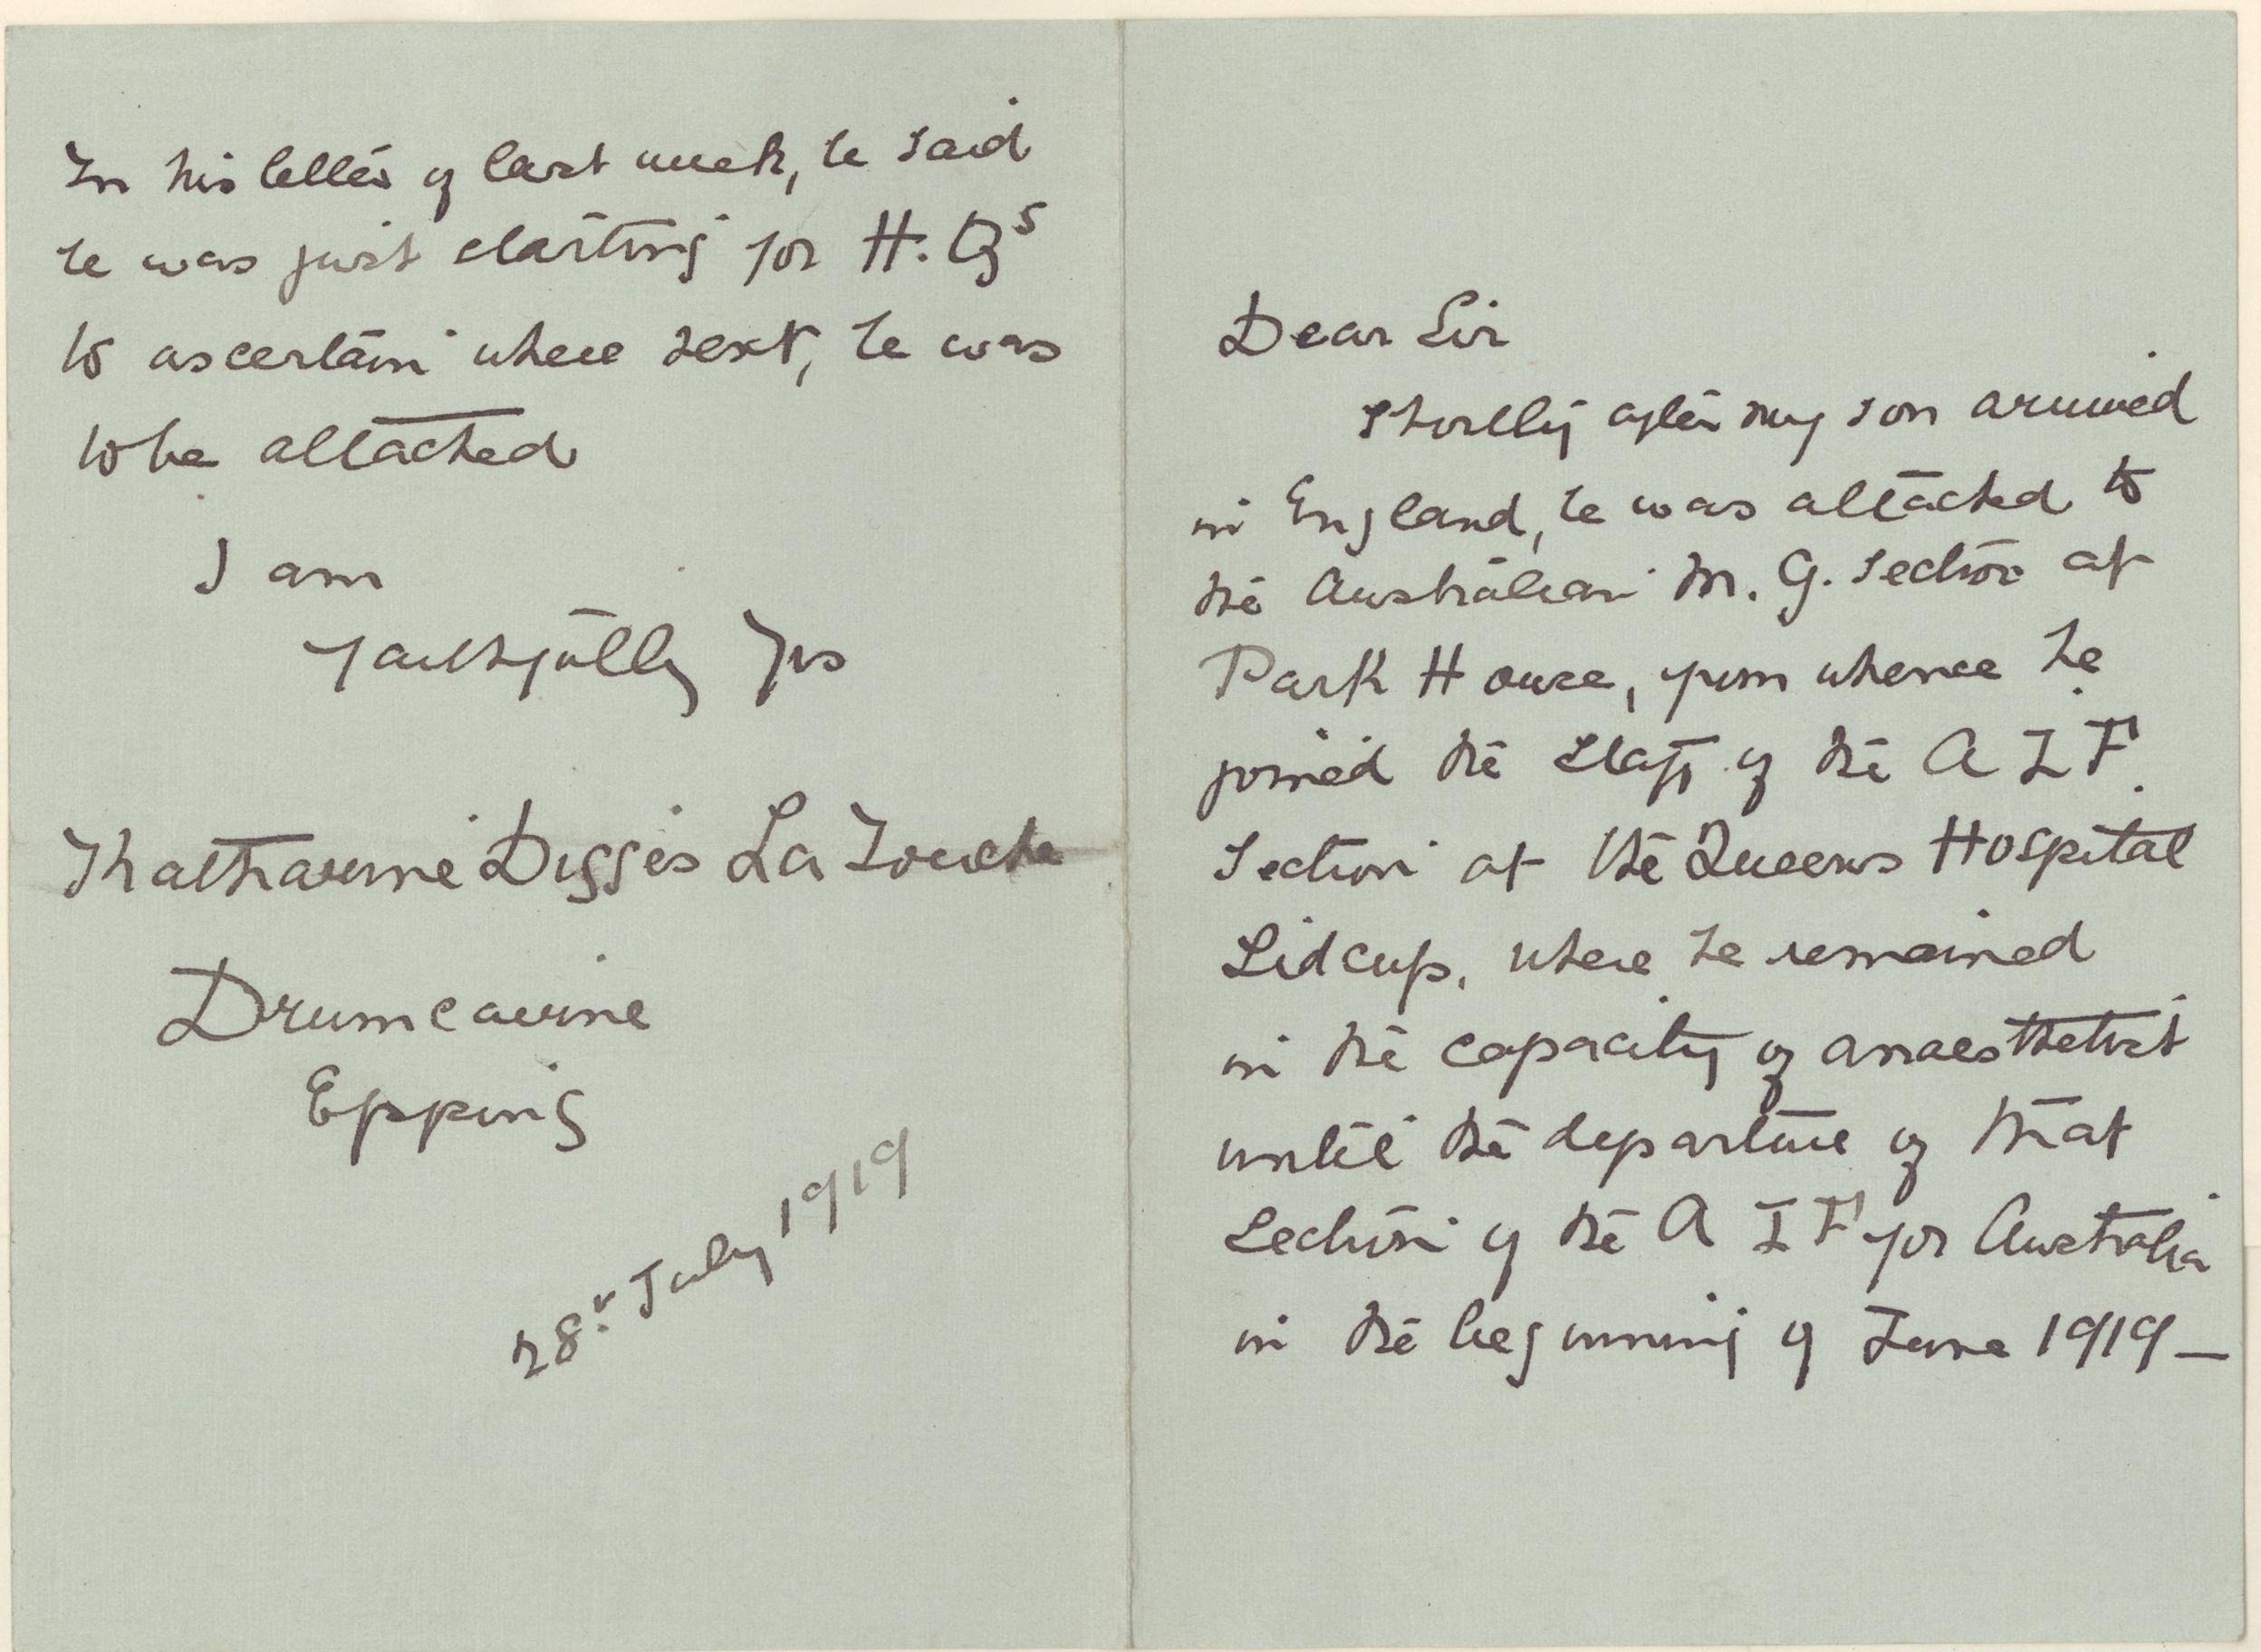 Dear Sir
Shortly after my son arrived
in England, he was attached to
the Australian M. G. Section at
Park House, from whence he
joined the Staff of the A I F.
Section at the Queens Hospital
Sidcup, where he remained
in the capacity of anaesthetist
until the departure of that
Section of the A I F for Australia
in the beginning of June 1919 —
In his letter of last week, he said
he was just starting for H. Qs
to ascertain where next, he was
to be attached
I am
faithfully Yrs
Katharine Digges La Touche
Drumcairne
Epping
28th July 1919